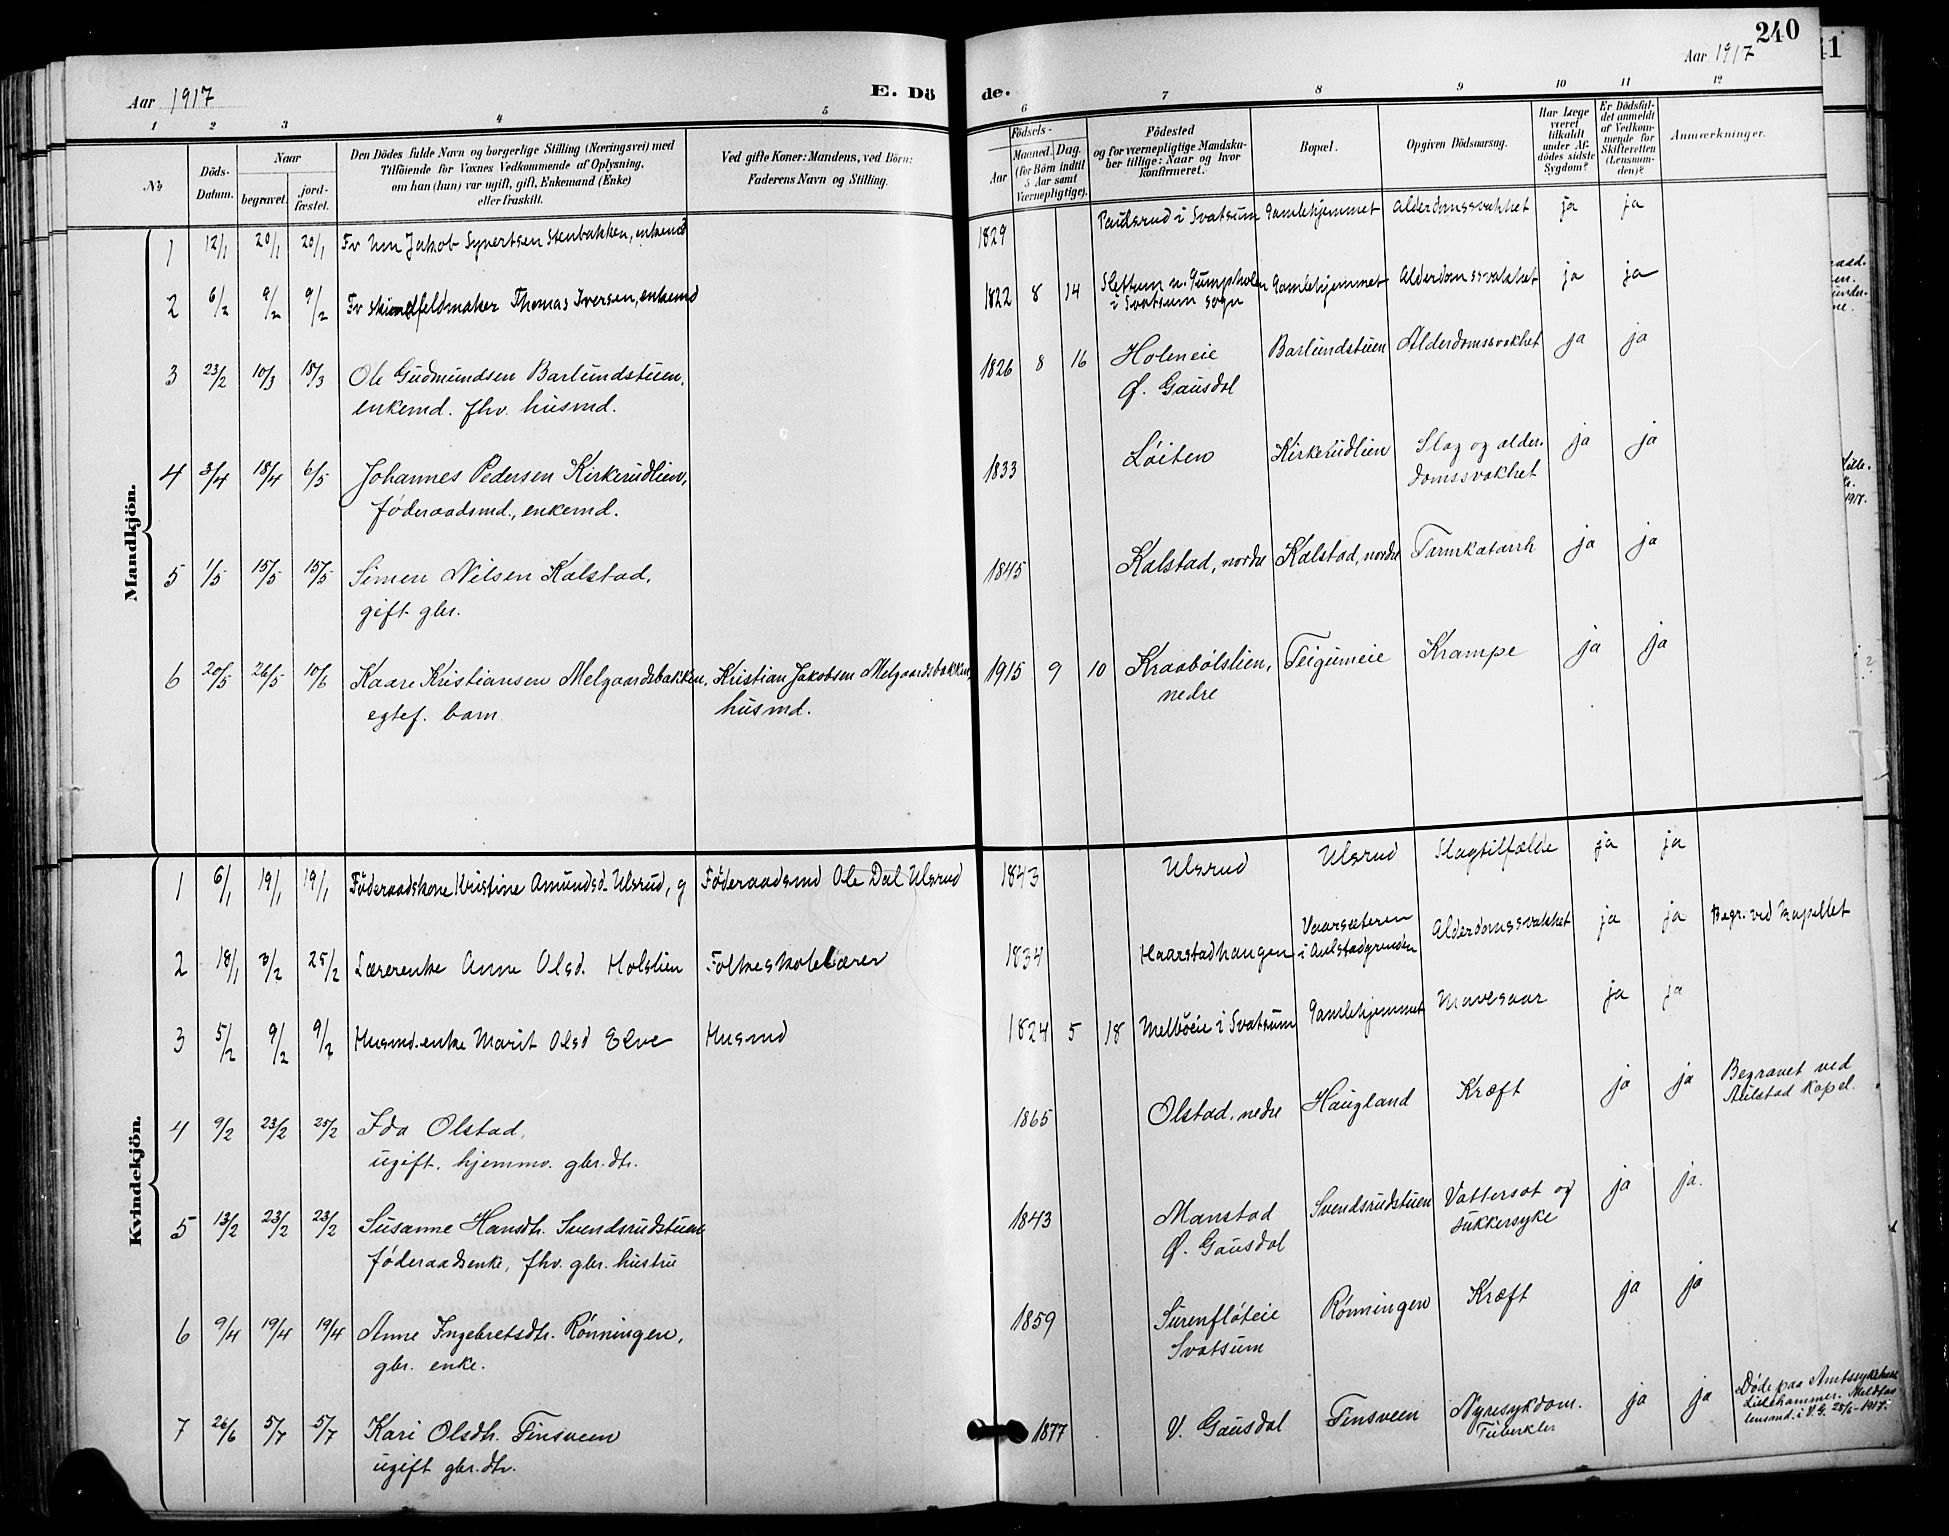 240
Aar 1917
E. Dö de.
Aar 1917
1 2 3 4 5 6 7 8 9 10 11 12
No
Döds-
Datum.
Naar
begravet.
jord-
fæstet.
Den Dödes fulde Navn og borgerlige Stilling (Næringsvei) med
Tilföiende for Voxnes Vedkommende af Oplysning,
om han (hun) var ugift, gift, Enkemand (Enke)
eller fraskilt.
Ved gifte Koner: Mandens, ved Börn:
Faderens Navn og Stilling.
Födsels-
Aar
Maaned. Dag.
(for Börn indtil
5 Aar samt
Værnepligtige).
Födested
og for værnepligtige Mandska-
ber tillige: Naar og hvor
konfirmeret.
Bopæl.
Opgiven Dödsaarsag.
Har Læge
været
tilkaldt
under Af-
dödes sidste
Sygdom?
Er Dödsfal-
det anmeldt
af Vedkom-
mende for
Skifteretten
(Lensman-
den)?
Anmærkninger.
Mandkjön.
1 12/1 20/1 20/1 Fv Jakob Syvertsen Stenbakken, enkemd 1829 Paulsrud i Svatsum Gamlehjemmet Alderdomssvakhet ja ja
2 6/2 9/2 9/2 Fv skindfeldmaker Thomas Iversen, enkemd 1822 8 14 Slettum u. Gumpholen Gamlehjemmet Alderdomssvakhet ja ja
i Svatsum sogn
3 23/2 10/3 18/3 Ole Gudmundsen Barlundstuen, 1826 8 16 Holeneie Barlundstuen Alderdomssvakhet ja ja
enkemd. fhv. husmd. Ø. Gausdal
4 3/4 18/4 6/5 Johannes Pedersen Kirkerudlien, 1833 Løiten Kirkerudlien Slag og alder- ja ja
føderaadsmd., enkemd. domssvakhet
5 1/5 15/5 15/5 Simen Nilsen Kalstad, 1845 Kalstad, nordre Kalstad, nordre Tarmkatarrh ja ja
gift gbr.
6 20/5 26/5 10/6 Kaare Kristiansen Melgaardsbakken, Kristian Jakobsen Melgaardsbakken, 1915 9 10 Kraabølslien, Teigumeie Krampe ja ja
egtef. barn husmd. nedre
Kvindekjön.
1 6/1 19/1 19/1 Føderaadskone Kristine Amundsd Ulsrud, g Føderaadsmd Ole Dal Ulsrud 1843 Ulsrud Ulsrud Slagtilfælde ja ja
2 18/1 3/2 25/2 Lærerenke Anne Olsd. Holslien Folkeskolelærer 1834 Haarstadhaugen Vaarsæteren Alderdomssvakhet ja ja Begr. ved Kapellet
i Aulstadgrenden
3 5/2 9/2 9/2 Husmd.enke Marit Olsd Elve Husmd 1824 5 18 Melbøeie i Svatsum Gamlehjemmet Mavesaar ja ja
4 9/2 23/2 25/2 Ida Olstad, 1865 Olstad, nedre Haugland Kræft ja ja Begravet ved
ugift, hjemmv. gbr.dtr. Aulstad kapel.
5 13/2 23/2 23/2 Susanne Hansdtr. Svendsrudstuen 1843 Manstad Svendsrudstuen Vattersot og ja ja.
føderaadsenke, fhv. gbr. hustru Ø. Gausdal sukkersyke
6 9/4 19/4 19/4 Anne Ingebretsdtr. Rønningen, 1859 Surenfløteie Rønningen Kræft ja ja
gbr. enke. Svatsum
7 26/6 5/7 5/7 Kari Olsdtr. Finsveen 1877 V. Gausdal Finsveen Nyresykdom. ja ja Døde paa Amtssykehuset
ugift gbr.dtr. Tuberkler Lillehammer. Meldt as
lensmd. i V.G. 28/6-1917.